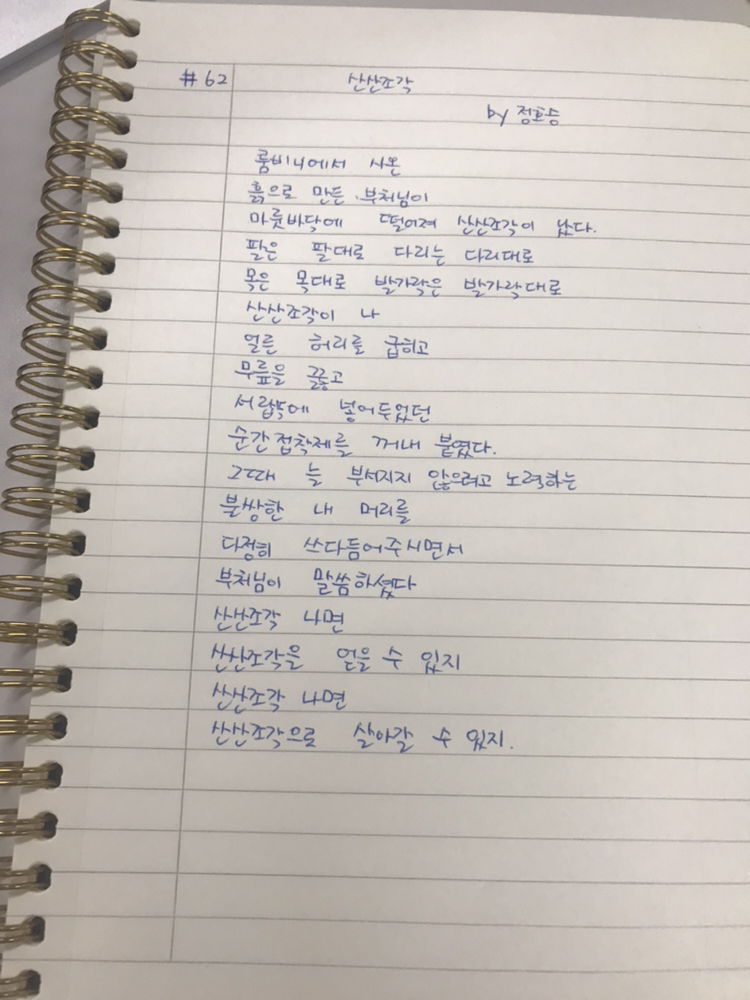 #62 산산조각
by 정호승
룸비니에서 사온
흙으로 만든 부처님이
마룻바닥에 떨어져 산산조각이 났다.
팔은 팔대로 다리는 다리대로
목은 목대로 발가락은 발가락대로
산산조각이 나
얼른 허리를 굽히고
무릎을 꿇고
서랍속에 넣어두었던
순간접착제를 꺼내 붙였다.
그때 늘 부서지지 않으려고 노력하는
불쌍한 내 머리를
다정히 쓰다듬어주시면서
부처님이 말씀하셨다
산산조각 나면
산산조각을 얻을 수 있지
산산조각 나면
산산조각으로 살아갈 수 있지.